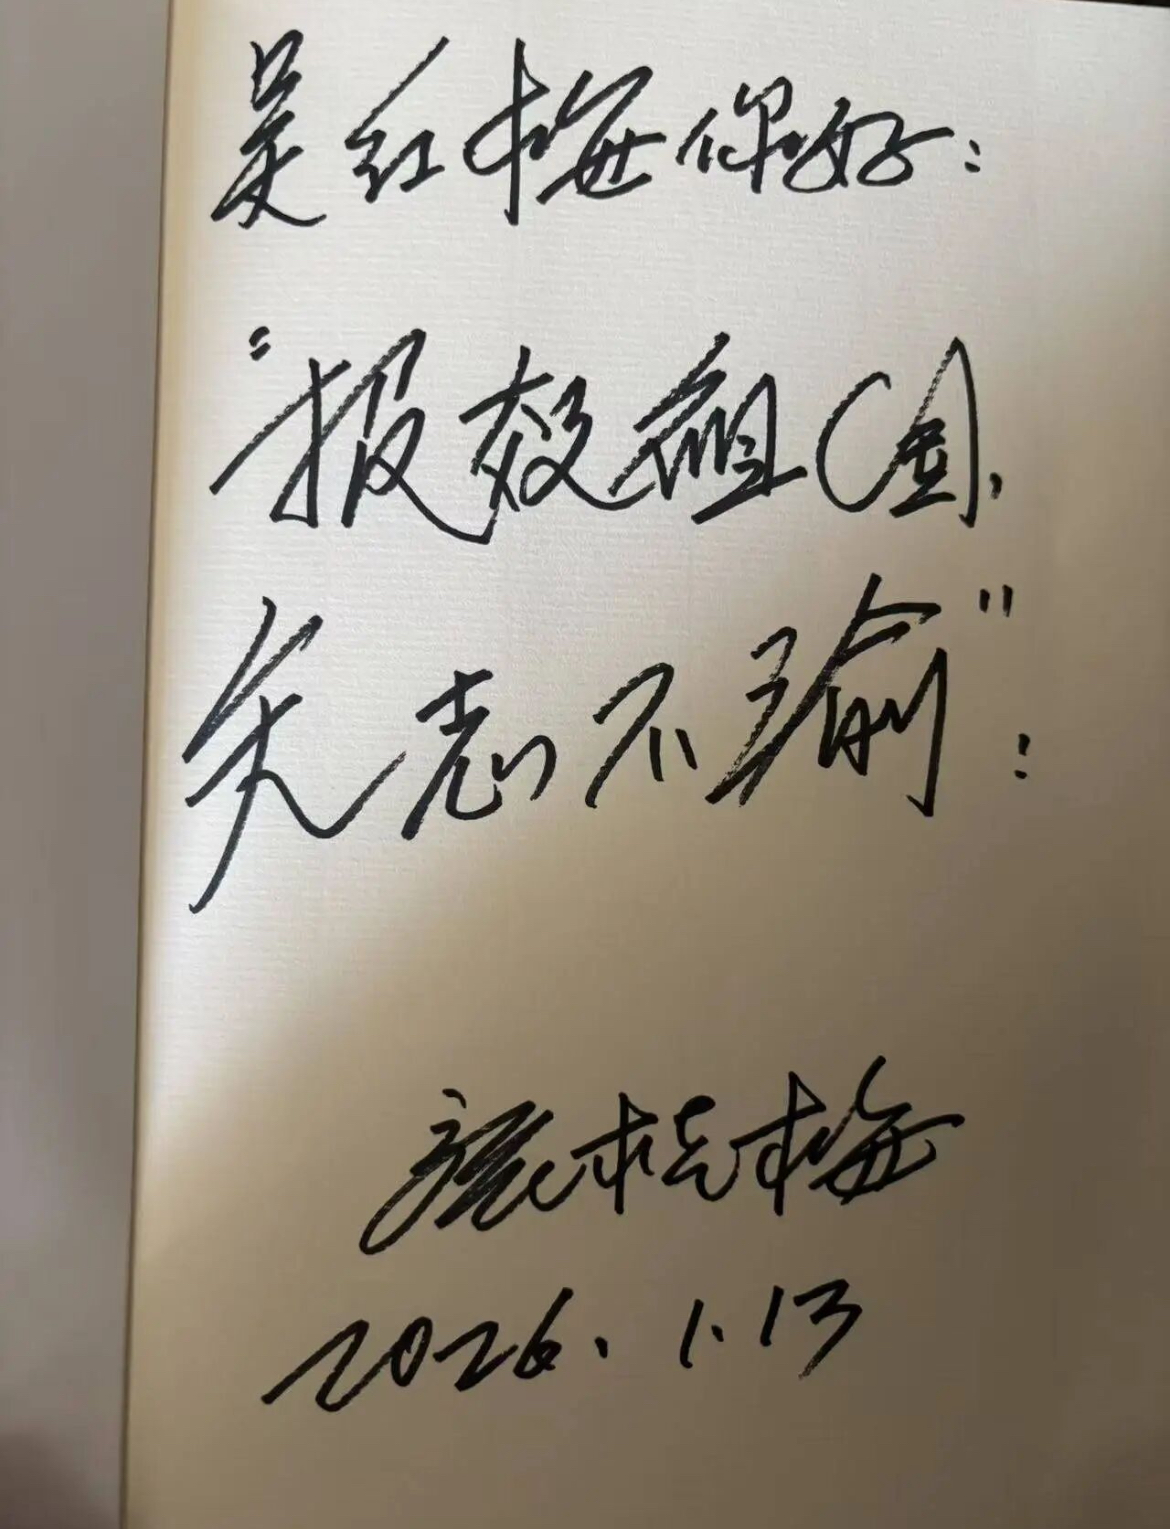 吴红梅你好：
“报效祖国，
矢志不渝”：
张桂梅
2026.1.13